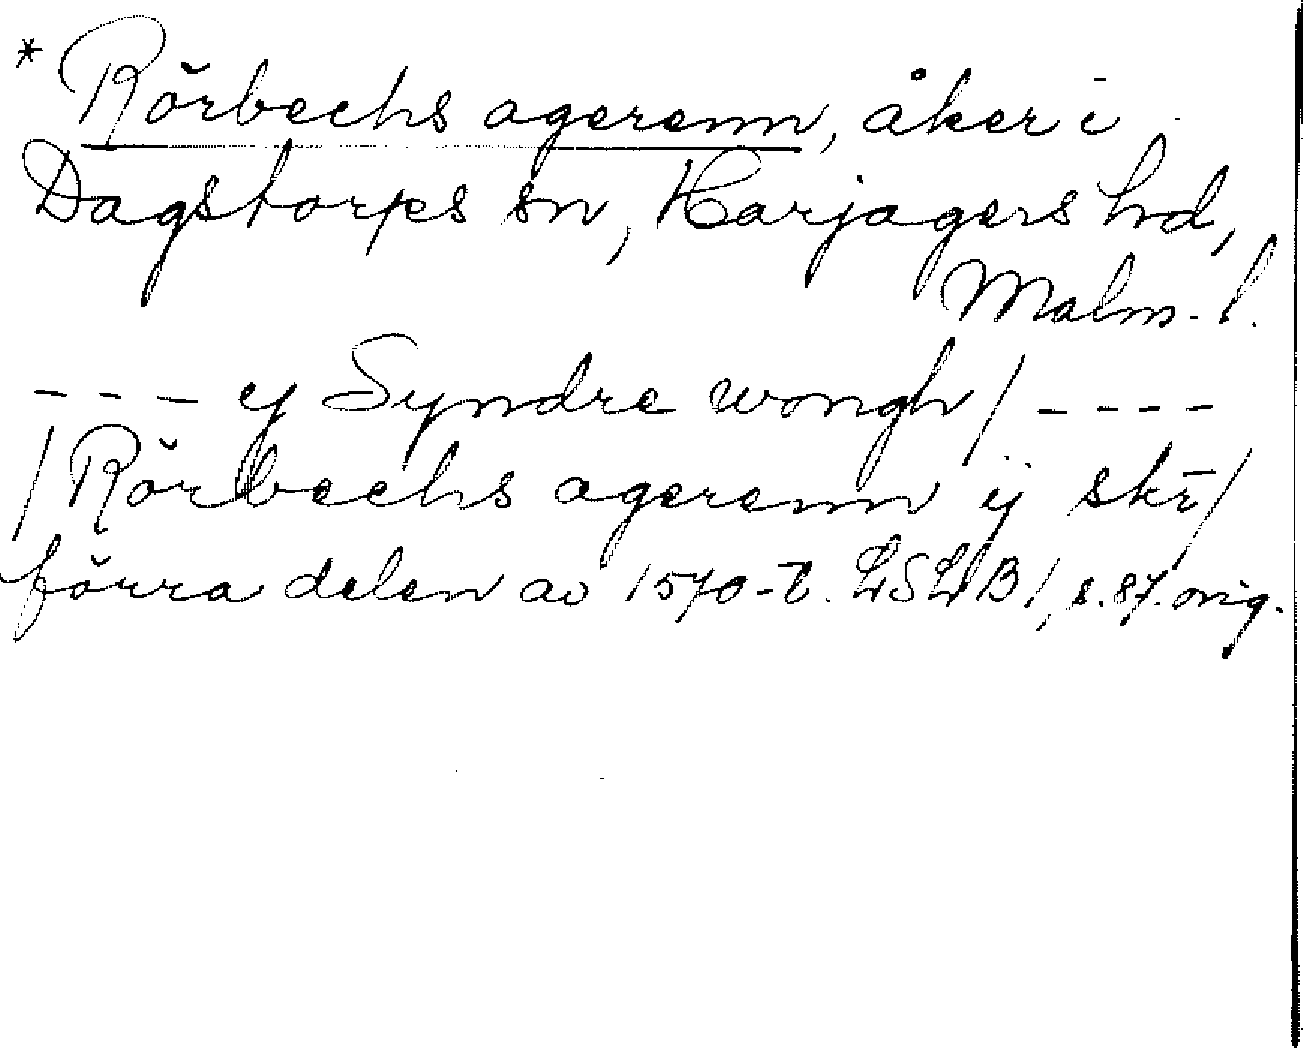 * Rörbechs agerenn, åker i
Dagstorps sn, Harjagers hd,
Malm. l.
- - - ij Syndre wongh / - - - -
/ Rörbechs agerenn ij skr̄ /
förra delen av 1570-t. LSLB 1, s. 87. orig.